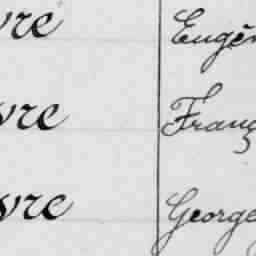 vre Eugèn
vre Franç
vre George